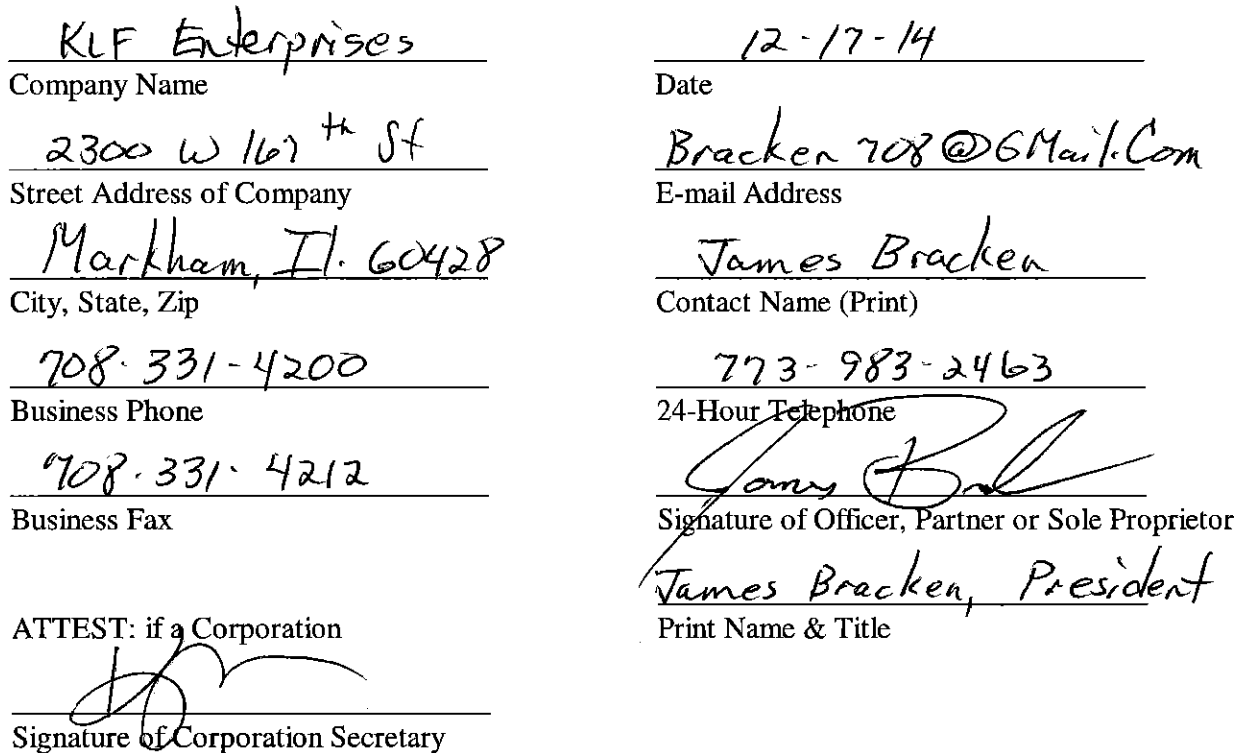 KLF Enterprises
Company Name
2300 W 167th St
Street Address of Company
Markham, Il. 60428
City, State, Zip
708-331-4200
Business Phone
708-331-4212
Business Fax
ATTEST: if a Corporation
Signature of Corporation Secretary
12-17-14
Date
Bracken708@GMail.Com
E-mail Address
James Bracken
Contact Name (Print)
773-983-2463
24-Hour Telephone
James
Signature of Officer, Partner or Sole Proprietor
James Bracken, President
Print Name & Title